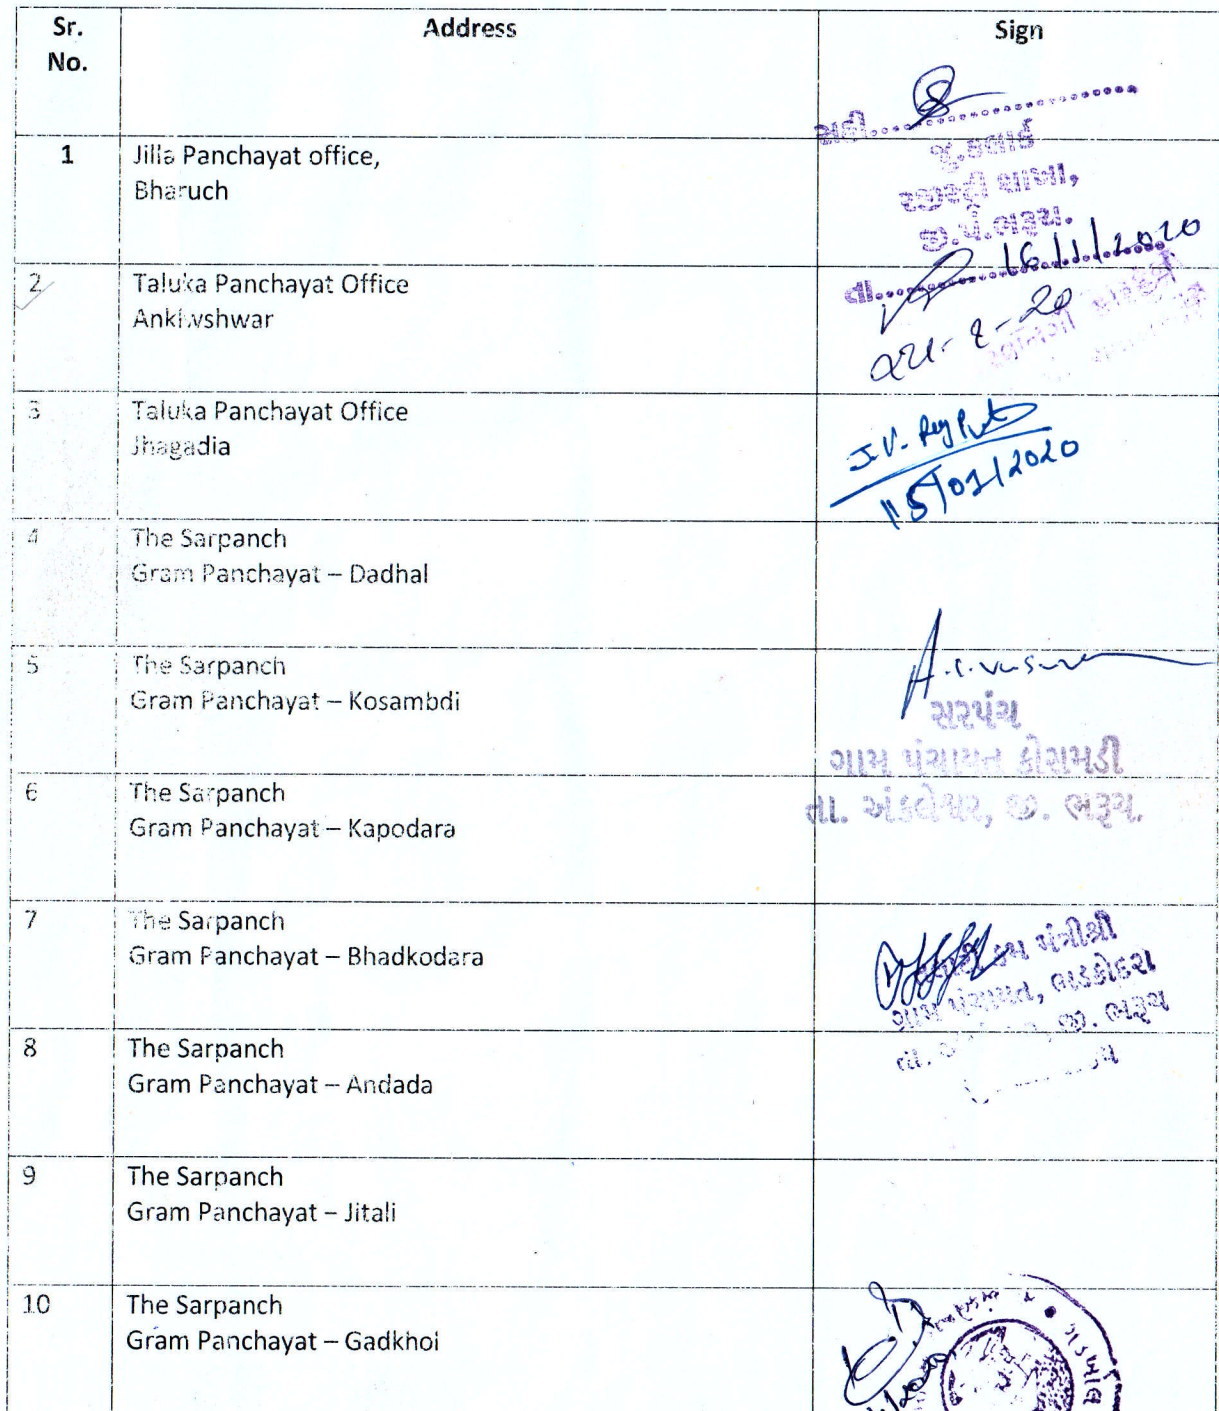 Sr. No. Address Sign
સહી
જુ.કલાર્ક
રજીસ્ટ્રી શાખા,
જી.પં.ભરૂચ.
1 Jilla Panchayat office,
Bharuch
તા. 16/1/2020
2 Taluka Panchayat Office
Anklwshwar
3 Taluka Panchayat Office
Jhagadia
J.V.
15/01/2020
4 The Sarpanch
Gram Panchayat – Dadhal
5 The Sarpanch
Gram Panchayat – Kosambdi
સરપંચ
ગામ પંચાયત કોસમડી
તા. અંકલેશ્વર, જી. ભરૂચ.
6 The Sarpanch
Gram Panchayat – Kapodara
7 The Sarpanch
Gram Panchayat – Bhadkodara
મંત્રીશ્રી
ગામ પંચાયત, ભડકોદરા
તા. જી. ભરૂચ
8 The Sarpanch
Gram Panchayat – Andada
9 The Sarpanch
Gram Panchayat – Jitali
10 The Sarpanch
Gram Panchayat – Gadkhol
ગડખોલ